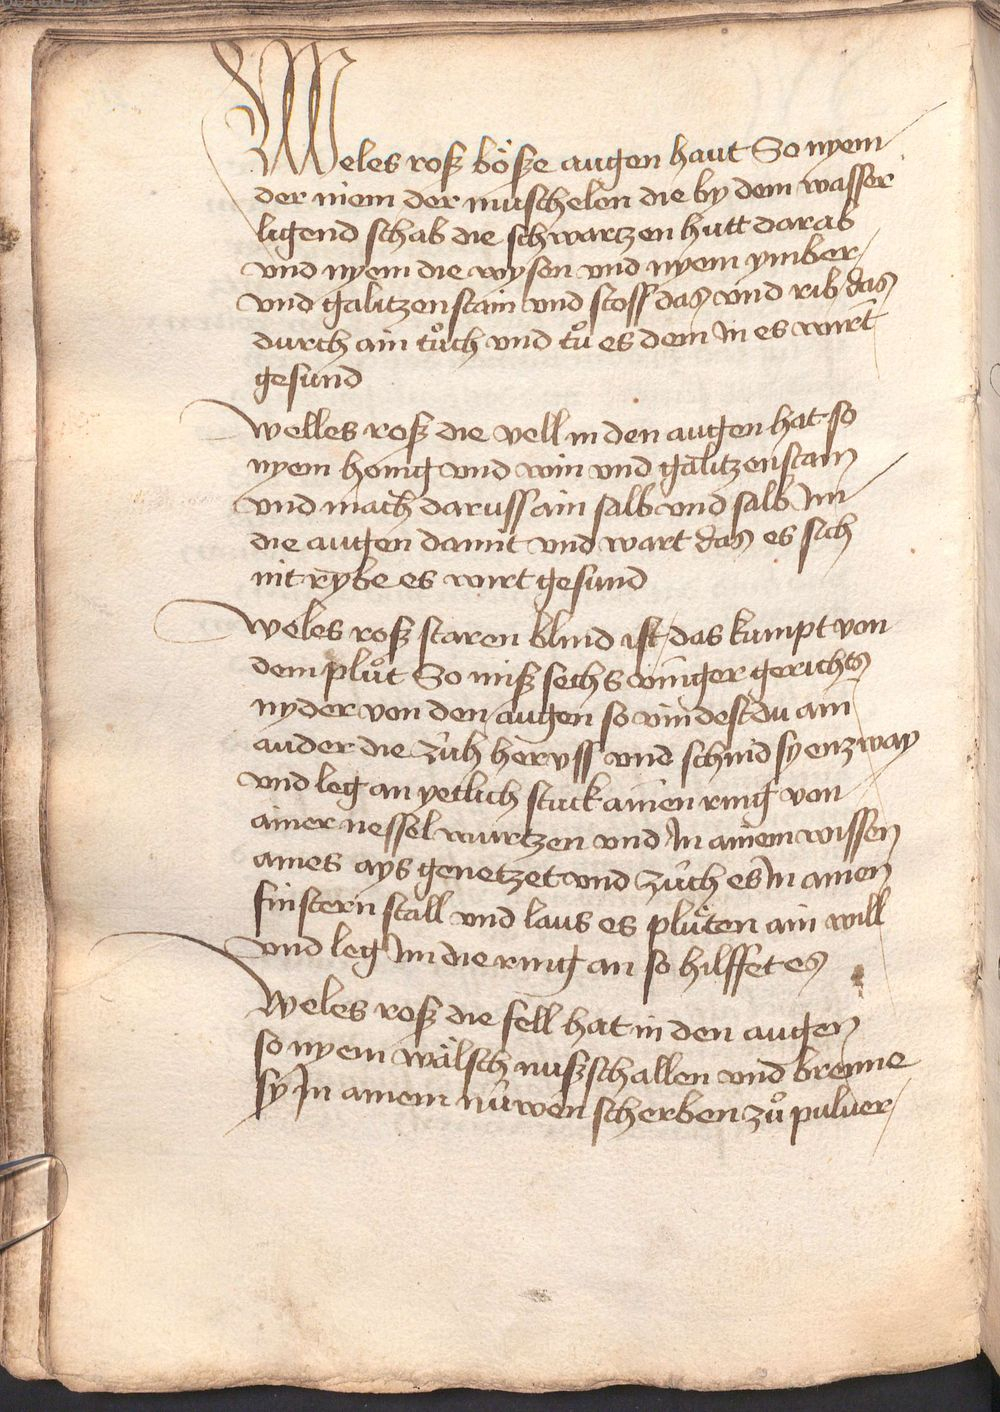 Weles roß böße augen haut So nyem
der niem der muschelen die by dem wasser
ligend schab die schwartzen hutt darab
vnd nyem die wysen vnd nyem ymber
vnd galitzenstain vnd stoss das vnd rib das
durch ain tůch vnd tů es dem in es wirt
gesund
welles roß die vell in den augen hat so
nyem honig vnd win vnd galitzenstain
vnd mach daruss ain salb vnd salb Im
die augen damit vnd wart das es sich
nit rybe es wirt gesund
weles roß staren blind ist das kumpt von
dem plůt So miß sechs vinger gerichts
nyder von den augen so vindest du ain
auder die züh hervss vnd schnid sy enzway
vnd leg an yetlich stuck ainen ring von
ainer nessel wurtzen vnd In ainem wissen
aines ays genetzet vnd züch es In ainen
finstern stall vnd laus es plüten ain will
vnd leg Im die ring an so hilffet es
Weles roß die fell hat in den augen
so nyem wälsch nußschallen vnd brenne
sy In ainem nüwen scherben zů puluer